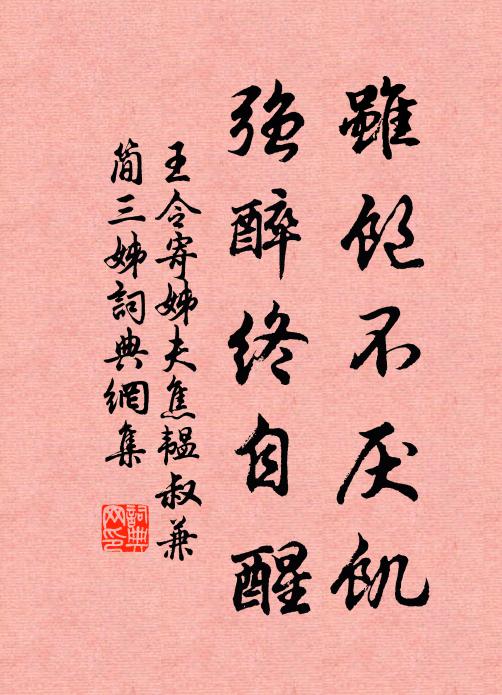 雖飽不厌飢
强醉終自醒
王令寄姊夫焦韞叔兼
简三姊詞典網集
詞典
网印